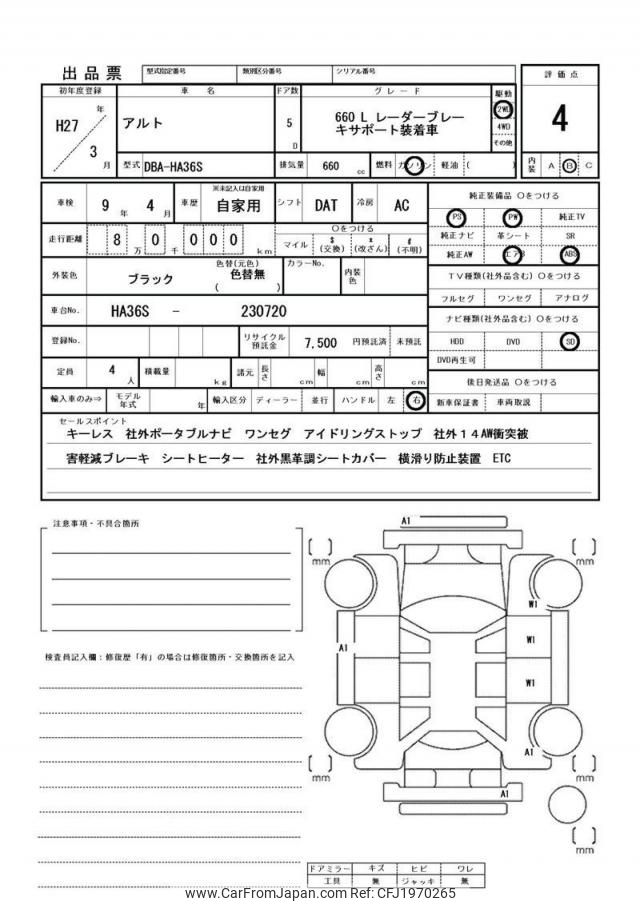 出品票 型式指定番号 類別区分番号 シリアル番号
評価点
初年度登録 車名 ドア数 グレード 駆動
H27 年 3 月
アルト
5 D
660 L レーダーブレー
キサポート装着車
2WD
4WD
その他
4
型式 DBA-HA36S 排気量 660 cc 燃料 ガソリン 軽油 ( )
内装 A B C
車検 9 年 4 月 車歴 ※未記入は自家用 自家用 シフト DAT 冷房 AC
純正装備品 〇をつける
PS PW 純正TV
走行距離 8 万 0 千 0 0 0 km
〇をつける
マイル $ (交換) x (改ざん) # (不明)
純正ナビ 革シート SR
純正AW エアB ABS
外装色 ブラック 色替(元色) 色替無 ( ) カラーNo. 内装色
TV種類(社外品含む) 〇をつける
フルセグ ワンセグ アナログ
車台No. HA36S - 230720
ナビ種類(社外品含む) 〇をつける
登録No. リサイクル預託金 7,500 円預託済 未預託
HDD DVD SD
DVD再生可
定員 4 人 積載量 kg 諸元 長さ cm 幅 cm 高さ cm
後日発送品 〇をつける
輸入車のみ⇒ モデル年式 年 輸入区分 ディーラー 並行 ハンドル 左 右
新車保証書 車両取説
セールスポイント
キーレス 社外ポータブルナビ ワンセグ アイドリングストップ 社外14AW衝突被
害軽減ブレーキ シートヒーター 社外黒革調シートカバー 横滑り防止装置 ETC
注意事項・不具合箇所
検査員記入欄:修復歴「有」の場合は修復箇所・交換箇所を記入
A1
[ ] mm
[ ] mm
W1
A1
W1
W1
A1
[ ] mm
[ ] mm
A1
[ ] mm
ドアミラー キズ ヒビ ワレ
工具 無 ジャッキ 無
www.CarFromJapan.com Ref No. CFJ1970265